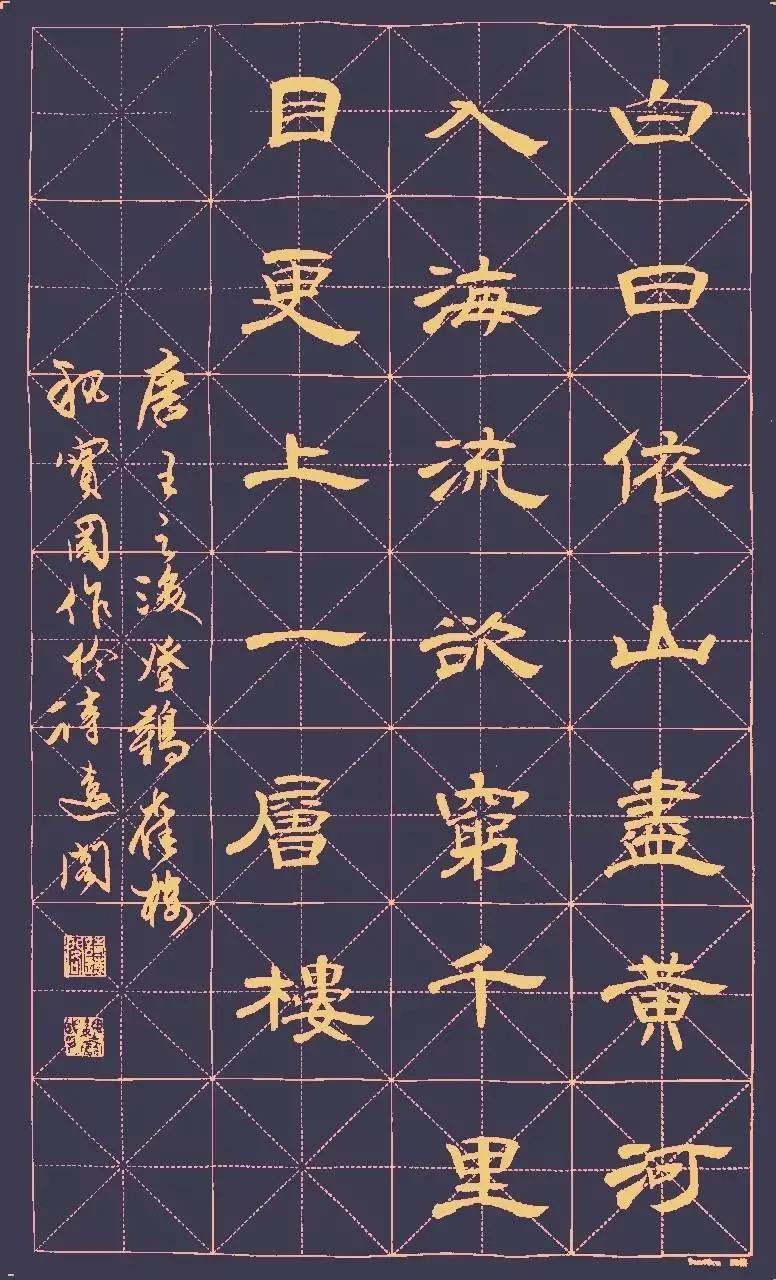 白日依山盡黃河
入海流欲窮千里
目更上一層樓
唐王之渙登鸛雀樓
寶國作於待盡閣